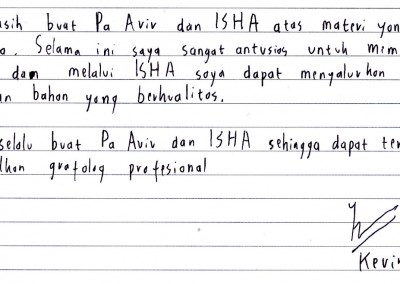 asih buat Pa Aviv dan ISHA atas materi yan
o. Selama ini saya sangat antusias untuk mem
dan melalui ISHA saya dapat menyalurkan
an bahan yang berkualitas.
selalu buat Pa Aviv dan ISHA sehingga dapat ter
dkan grafolog profesional
Kevin